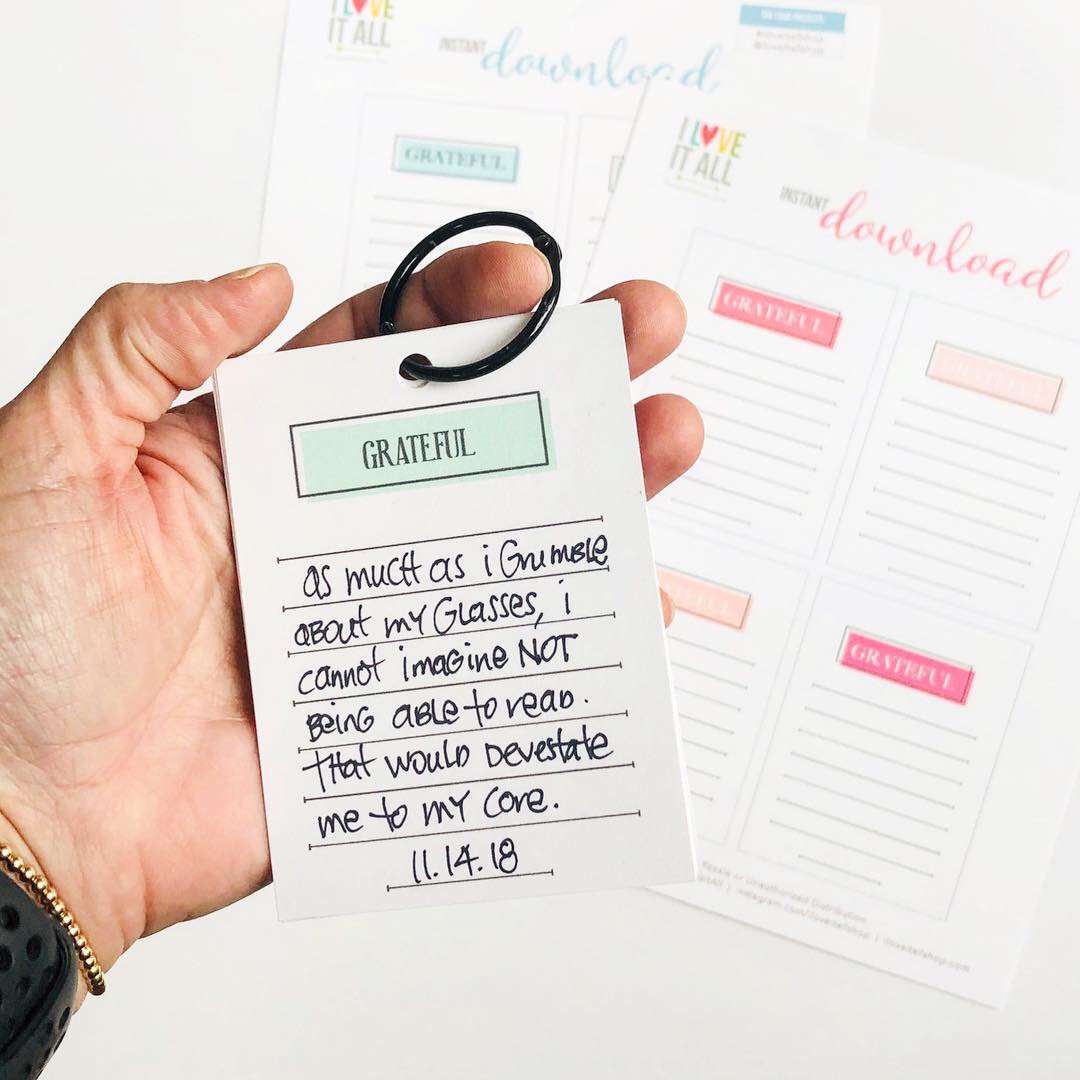 I LOVE
IT ALL
INSTANT download
GRATEFUL
I LOVE
IT ALL
INSTANT download
GRATEFUL
GRATEFUL
GRATEFUL
GRATEFUL
as much as i Grumble
about my Glasses, i
cannot imagine NOT
Being able to read.
That would Devestate
me to my core.
11.14.18
Resale or Unauthorized Distribution
| instagram.com/iloveitallshop | iloveitallshop.com